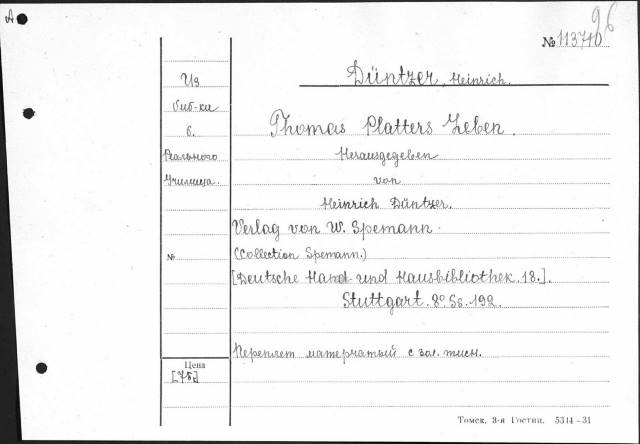 А
96
№ 113710
Düntzer, Heinrich.
Из
биб-ки
б.
Реального
Училища.
Thomas Platters Leben.
Herausgegeben
von
Heinrich Düntzer.
Verlag von W. Spemann.
№
(Collection Spemann.)
[Deutsche Hand- und Hausbibliothek. 18.].
Stuttgart. 8º. S6. 192.
Переплет матерчатый с зол. тисн.
Цена
[75]
Томск, 3-я Гостип. 5314-31